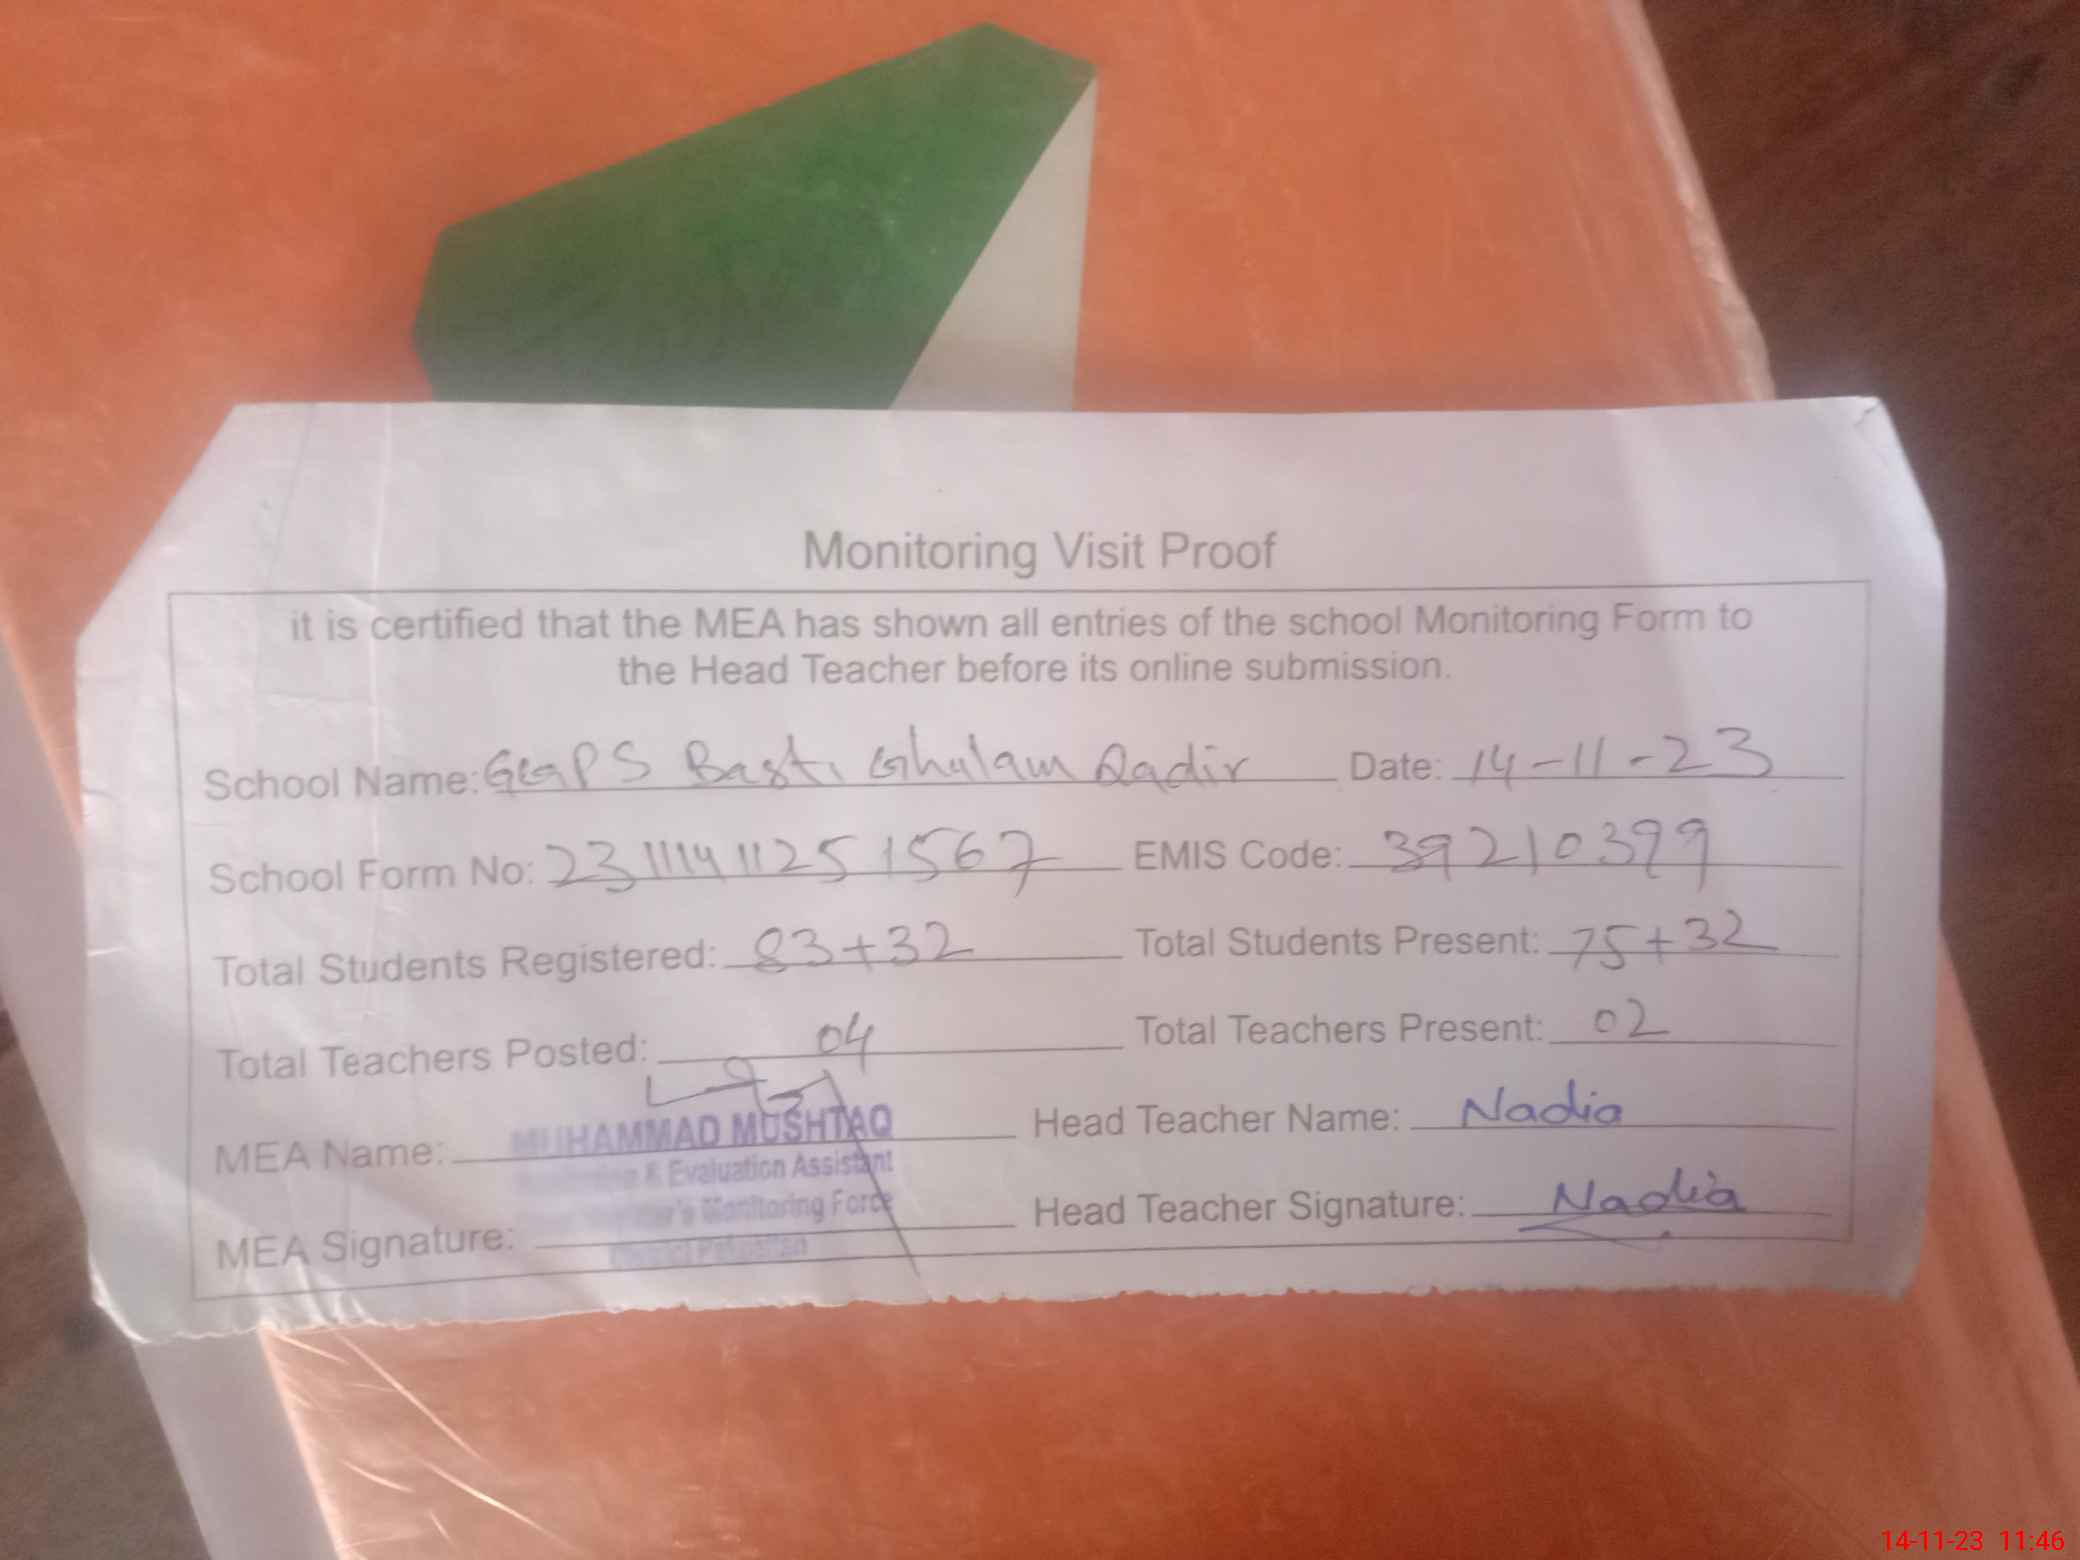 Monitoring Visit Proof
it is certified that the MEA has shown all entries of the school Monitoring Form to
the Head Teacher before its online submission.
School Name: GGPS Basti Ghulam Qadir Date: 14-11-23
School Form No: 23111411251567 EMIS Code: 39210399
Total Students Registered: 83+32 Total Students Present: 75+32
Total Teachers Posted: 04 Total Teachers Present: 02
MEA Name: MUHAMMAD MUSHTAQ Head Teacher Name: Nadia
& Evaluation Assistant
Monitoring Force
MEA Signature: Head Teacher Signature: Nadia
District
14-11-23 11:46